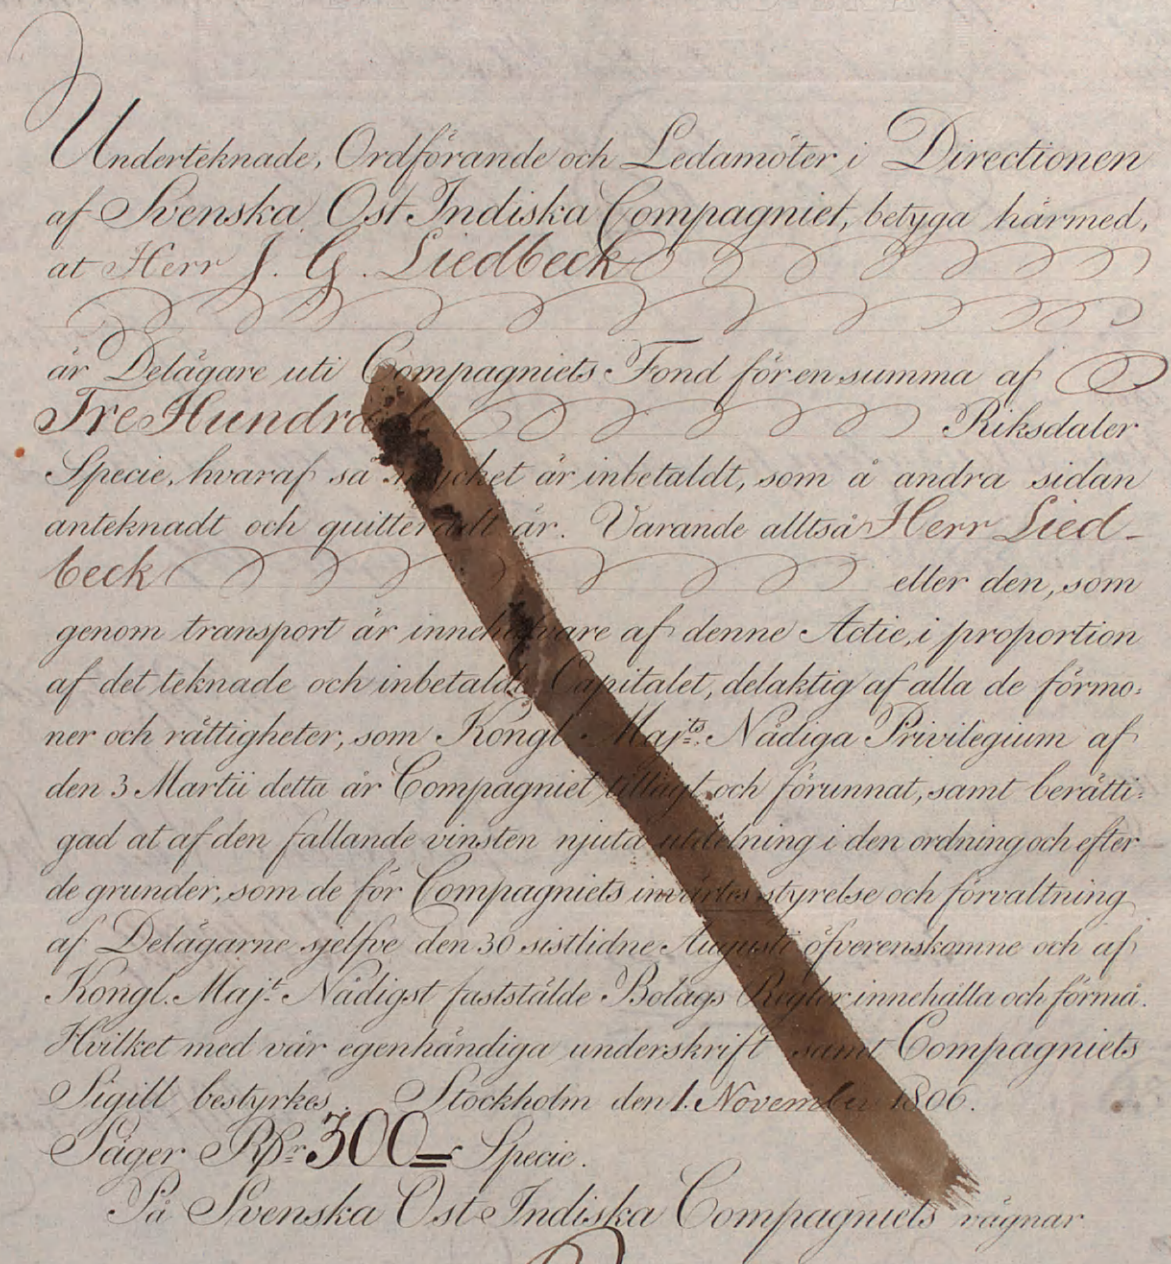 Underteknade, Ordförande och Ledamöter i Directionen
af Svenska Ost Indiska Compagniet, betyga härmed,
at Herr J. G. Liedbeck
är Delägare uti Compagniets Fond för en summa af
Tre Hundrade Riksdaler
Specie, hvaraf så mycket är inbetaldt, som å andra sidan
anteknadt och quitteradt är. Varande alltså Herr Lied-
beck eller den, som
genom transport är innehafvare af denne Actie, i proportion
af det teknade och inbetalde Capitalet, delaktig af alla de förmo-
ner och rättigheter, som Kongl. Maj:ts Nådiga Privilegium af
den 3 Martii detta år Compagniet tillagt och förunnat, samt berätti-
gad at af den fallande vinsten njuta utdelning i den ordning och efter
de grunder, som de för Compagniets invärtes styrelse och förvaltning
af Delägarne sjelfve den 30 sistlidne Augusti öfverenskomne och af
Kongl. Maj:t Nådigst faststälde Bolags Reglor innehålla och förmå.
Hvilket med vår egenhändiga underskrift samt Compagniets
Sigill bestyrkes. Stockholm den 1. November 1806.
Säger Rdr 300 Specie.
På Svenska Ost Indiska Compagniets vägnar